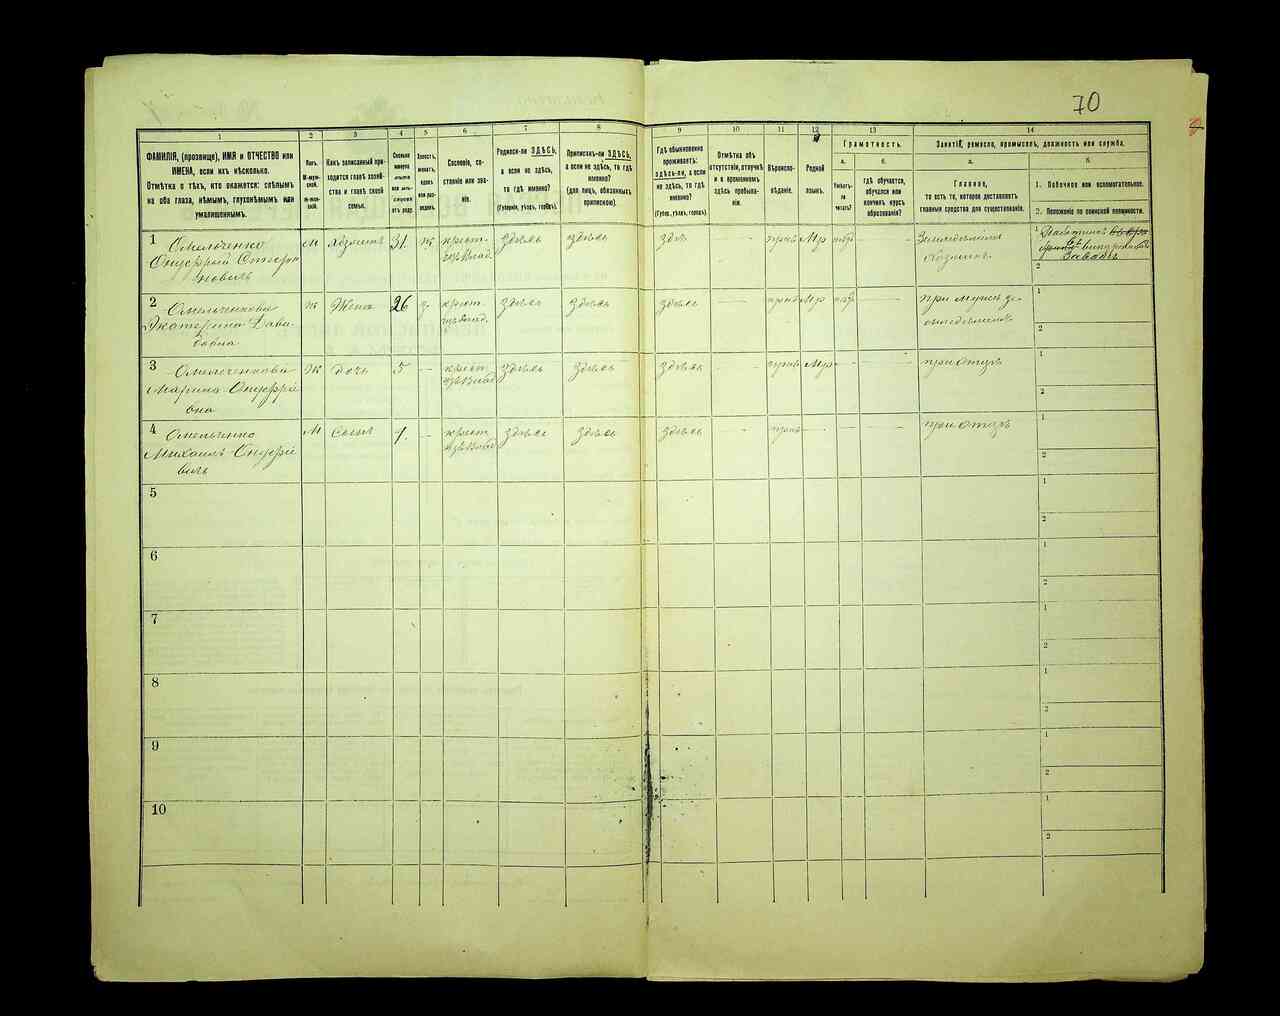 70
1
2
3
4
5
6
7
8
9
10
11
12
13
14
ФАМИЛІЯ, (прозвище), ИМЯ и ОТЧЕСТВО или
ИМЕНА, если ихъ нѣсколько.
Отмѣтка о тѣхъ, кто окажется: слѣпымъ
на оба глаза, нѣмымъ, глухонѣмымъ или
умалишеннымъ.
Полъ.
М-муж-
ской.
Ж-жен-
скій.
Какъ записанный при-
ходится главѣ хозяй-
ства и главѣ своей
семьи.
Сколько
минуло
лѣтъ
или мѣ-
сяцевъ
отъ роду.
Холостъ,
женатъ,
вдовъ
или раз-
веденъ.
Сословіе, со-
стояніе или зва-
ніе.
Родился-ли ЗДѢСЬ,
а если не здѣсь,
то гдѣ именно?
(Губернія, уѣздъ, городъ).
Приписанъ-ли ЗДѢСЬ,
а если не здѣсь, то гдѣ
именно?
(для лицъ, обязанныхъ
припискою).
Гдѣ обыкновенно
проживаетъ:
здѣсь-ли, а если
не здѣсь, то гдѣ
именно?
(Губ., уѣздъ, городъ).
Отмѣтка объ
отсутствіи, отлучкѣ
и о временномъ
здѣсь пребыва-
ніи.
Вѣроиспо-
вѣданіе.
Родной
языкъ.
Грамотность.
а.
Умѣетъ-
ли
читать?
б.
гдѣ обучается,
обучался или
кончилъ курсъ
образованія?
Занятіе, ремесло, промыселъ, должность или служба.
а.
Главное,
то есть то, которое доставляетъ
главныя средства для существованія.
б.
1. Побочное или вспомогательное.
2. Положеніе по воинской повинности.
1 Омельченко
Онуфрій
м Хозяинъ 31 ж крест. здѣсь здѣсь здѣсь - прав Мр - Земледѣліе
Хозяинъ
1
2
2 Омельченкова
Екатерина Дави
довна
ж Жена 26 з. крест. здѣсь здѣсь здѣсь - прав Мр - при мужѣ зе-
1
2
3 Омельченкова
Марина Онуфріе
вна
ж дочь 5 - крест. здѣсь здѣсь здѣсь - прав Мр - - при отцѣ
1
2
4 Омельченко
Михаилъ Онуфріе
вичъ
м Сынъ 1. - крест. здѣсь здѣсь здѣсь - прав - - - при отцѣ
1
2
5
1
2
6
1
2
7
1
2
8
1
2
9
1
2
10
1
2